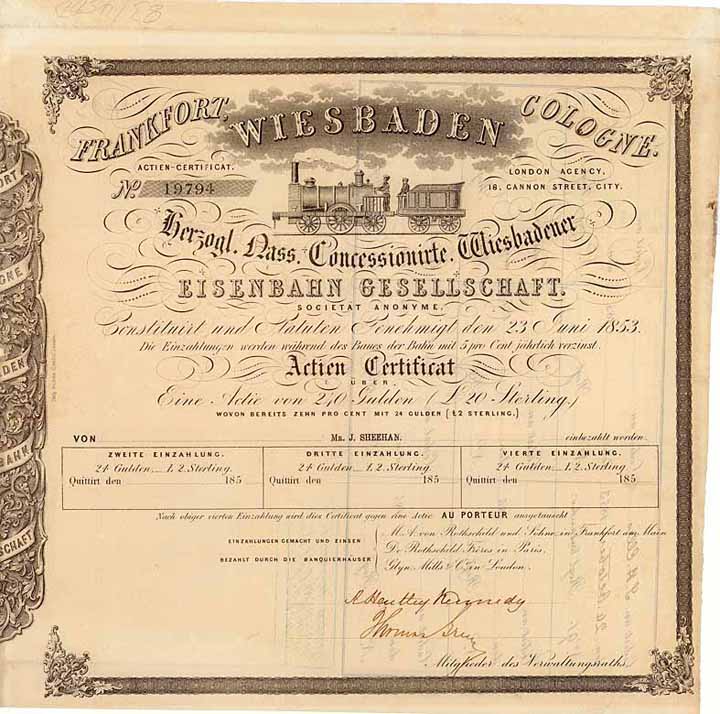 FRANKFORT. WIESBADEN COLOGNE.
ACTIEN-CERTIFICAT.
No. 19794
LONDON AGENCY,
18, CANNON STREET, CITY.
Herzogl. Nass. Concessionirte. Wiesbadener
EISENBAHN GESELLSCHAFT.
SOCIETAT ANONYME,
Constituirt und Statuten Genehmigt den 23 Juni 1853.
Die Einzahlungen werden während des Baues der Bahn mit 5 pro Cent jährlich verzinst.
Actien Certificat
ÜBER
Eine Actie von 240 Gulden (£20 Sterling.)
WOVON BEREITS ZEHN PRO CENT MIT 24 GULDEN (£2 STERLING.)
VON MR. J. SHEEHAN. einbezahlt worden.
ZWEITE EINZAHLUNG. DRITTE EINZAHLUNG. VIERTE EINZAHLUNG.
24 Gulden_ £2 Sterling. 24 Gulden_ £2 Sterling. 24 Gulden_ £2 Sterling.
Quittirt den 185 Quittirt den 185 Quittirt den 185
Nach obiger vierten Einzahlung wird dies Certificat gegen eine Actie AU PORTEUR ausgetauscht
EINZAHLUNGEN GEMACHT UND ZINSEN
BEZAHLT DURCH DIE BANQUIERHÄUSER
M. A. von Rothschild und Söhne, in Frankfurt am Main
De Rothschild Frères in Paris.
Glyn, Mills & Co. in London.
Kennedy
Thomas
Mitglieder des Verwaltungsraths.
BANK